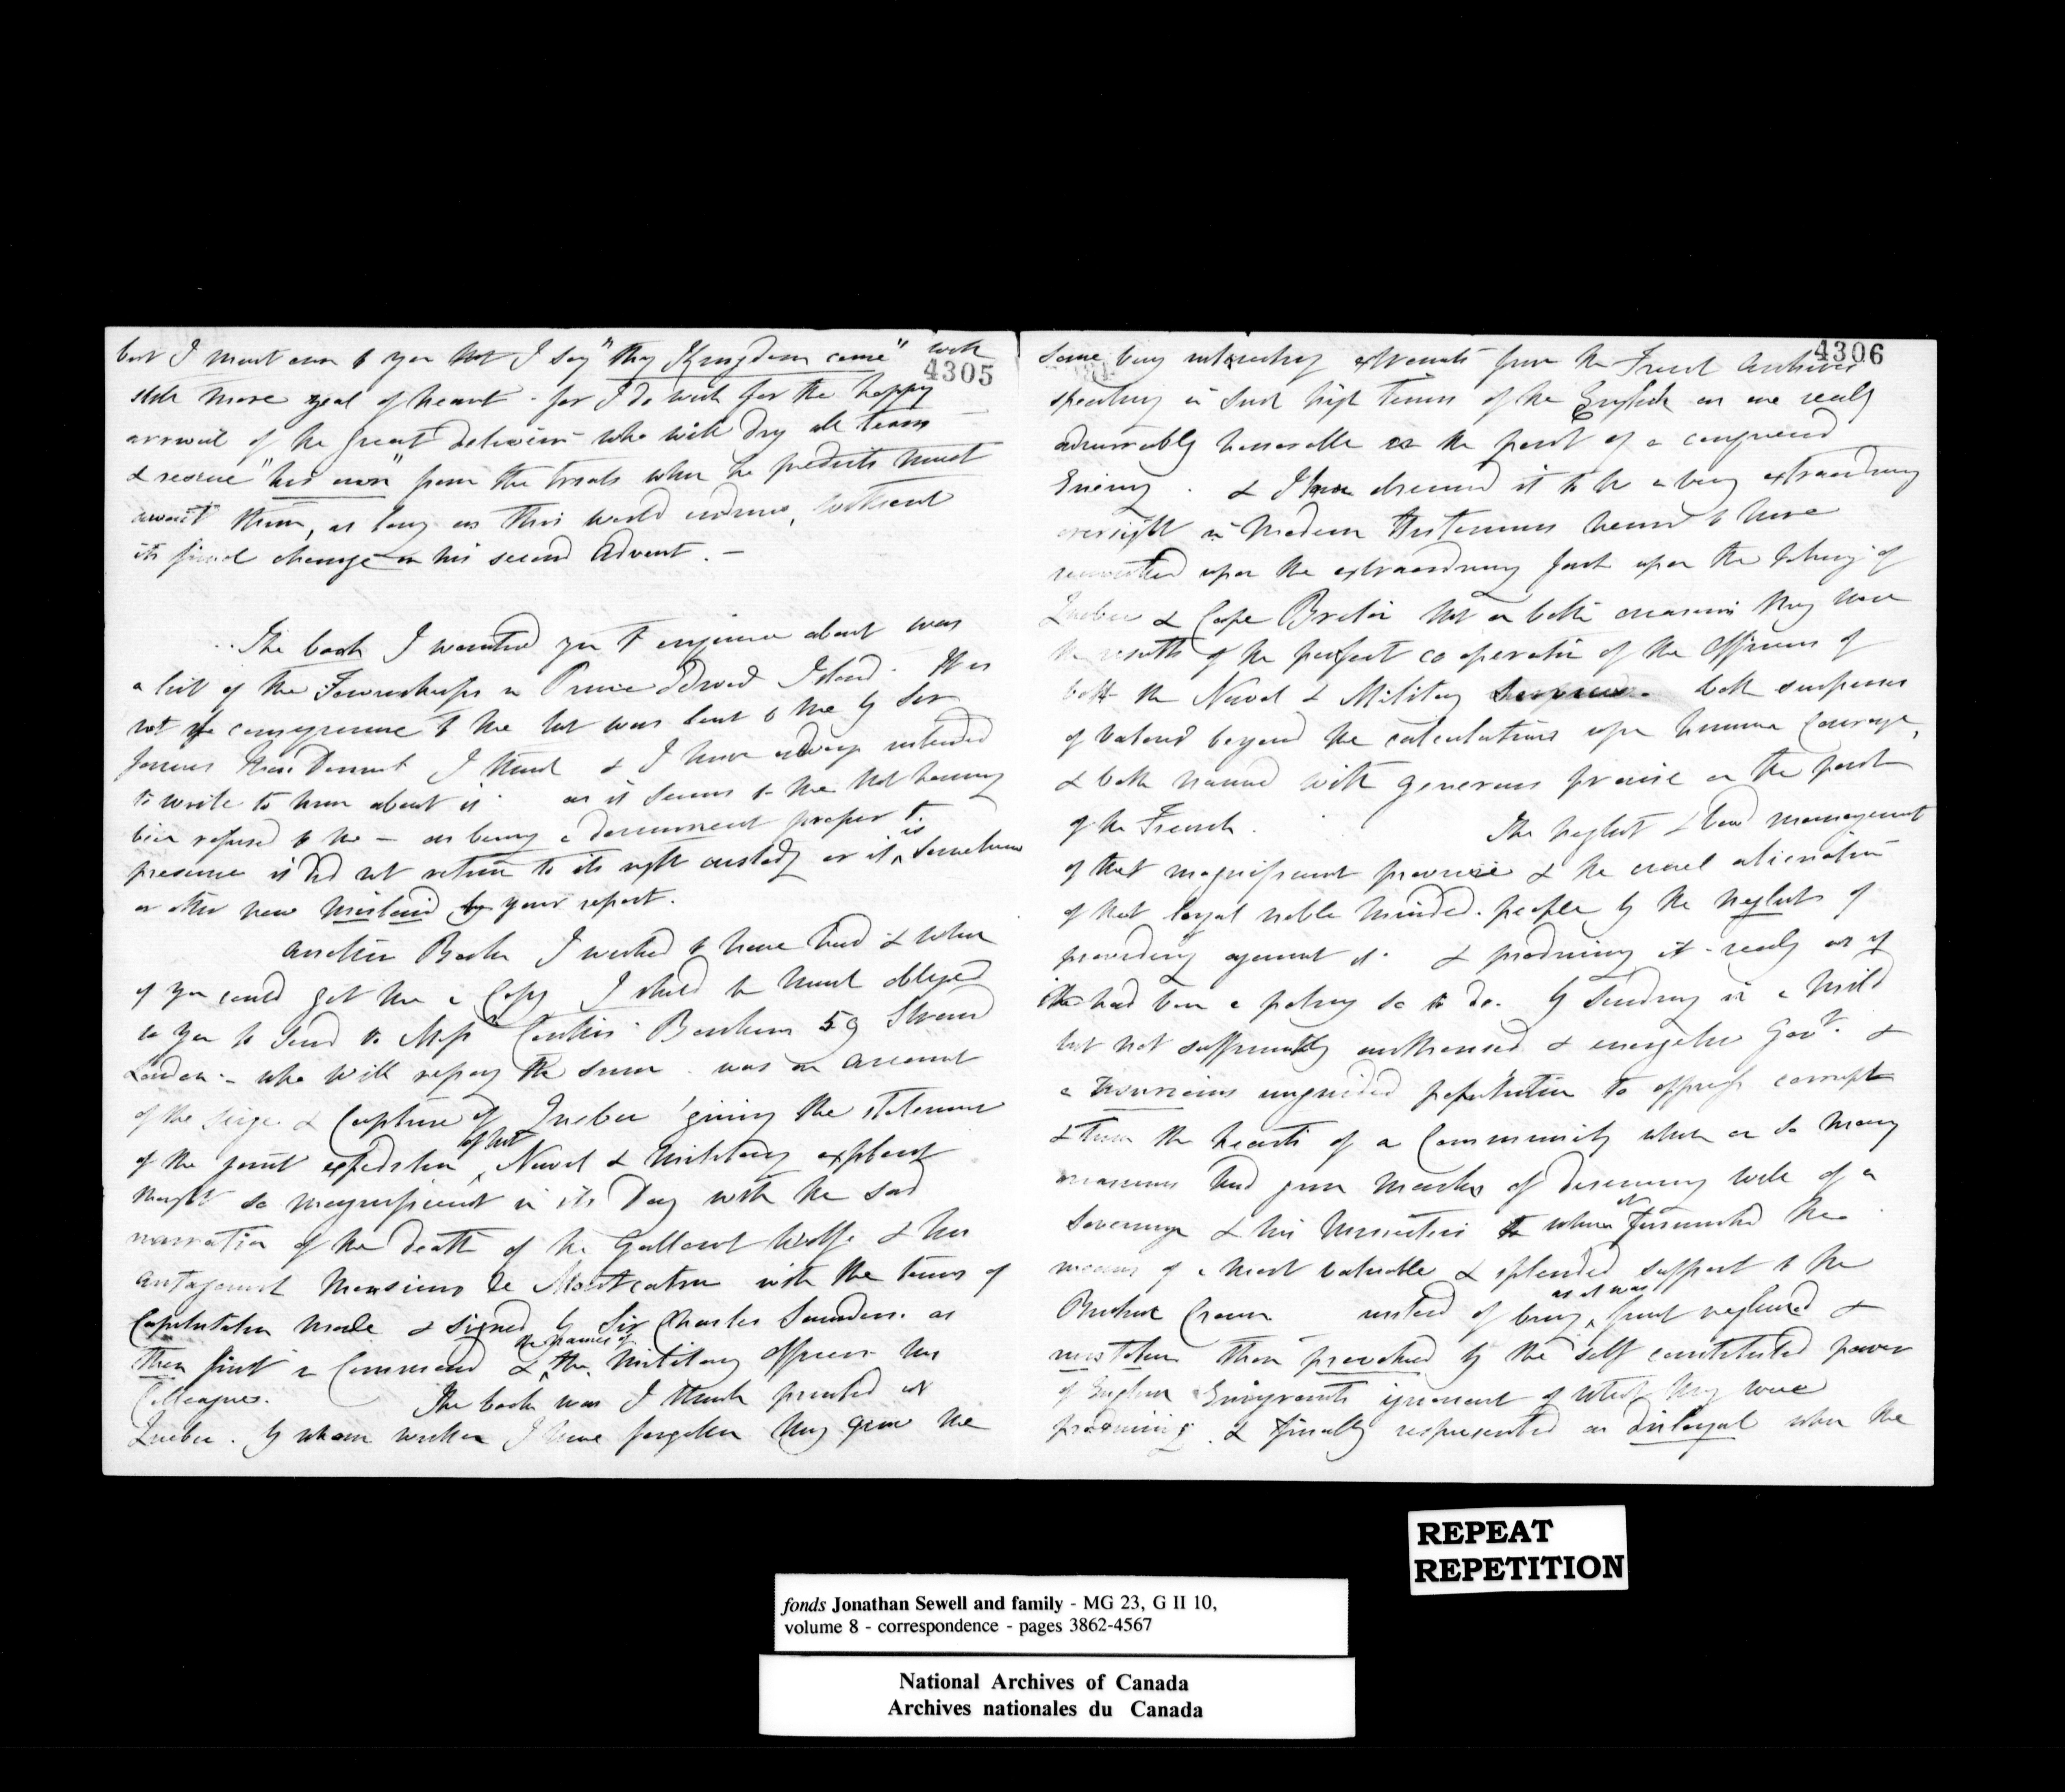 but I must own to you that I say "thy Kingdom come" with
4305
still more zeal of heart - for I do wish for the happy
arrival of the great deliverer who will dry all tears
& rescue "his own" from the trials when he predicts must
await them, as long as this world endures, without
its final change on his second Advent. -
The book I wanted you to enquire about was
a list of the Townships in Prince Edward Island. It is
not of consequence to me but was lent to me by Sir
James I think & I have always intended
to write to him about it as it seems to me that having
been refused to me - as being a document proper to
preserve it did not return to its right custody or it ^is somehow
or other now mislaid by your report.
Another Book I wished to have had & which
if you could get me a Copy I should be much obliged
to you to send to Messrs Coutts Bankers 59 Strand
London - who will repay the sum was an account
of the siege & Capture of Quebec giving the statement
of the joint expedition ^of that Naval & Military exploit
thought so magnificent in its Day with the sad
narration of the death of the Gallant Wolfe & his
antagonist Monsieur de Montcalm with the terms of
Capitulation made & signed by Sir Charles Saunders as
then first in Command & ^the names of the Military Officers his
Colleagues. The book was I think printed at
Quebec. By whom written I have forgotten they gave me
4306
some very interesting extracts from the French Archives
speaking in such high terms of the English as are really
admirably honorable on the part of a conquered
Enemy. & I have deemed it to be a very extraordinary
oversight in Modern Historians never to have
remarked upon the extraordinary fact upon the taking of
Quebec & Cape Breton that on both occasions they were
the results of the perfect co operation of the Officers of
both the Naval & Military Services. both
of valour beyond the calculations upon human Courage,
& both named with generous praise on the part
of the French. The neglect & bad management
of that magnificent province & the cruel alienation
of that loyal noble minded people by the neglect of
providing against it. & producing it - really as if
it had been a policy so to do. By sending in a mild
but not sufficiently authorised & energetic Govr. &
a unguided population to oppress corrupt
& turn the hearts of a Community which on so many
occasions had given marks of deserving well of a
Sovereign & his Ministers to whom ^it furnished the
means of a most valuable & splendid support to the
British Crown instead of being ^as it was first neglected &
mistaken then provoked by the self constituted power
of English Emigrants ignorant of what they were
producing. & finally represented as disloyal when the
REPEAT
REPETITION
fonds Jonathan Sewell and family - MG 23, G II 10,
volume 8 - correspondence - pages 3862-4567
National Archives of Canada
Archives nationales du Canada